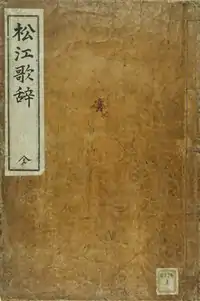 松江歌辞
全